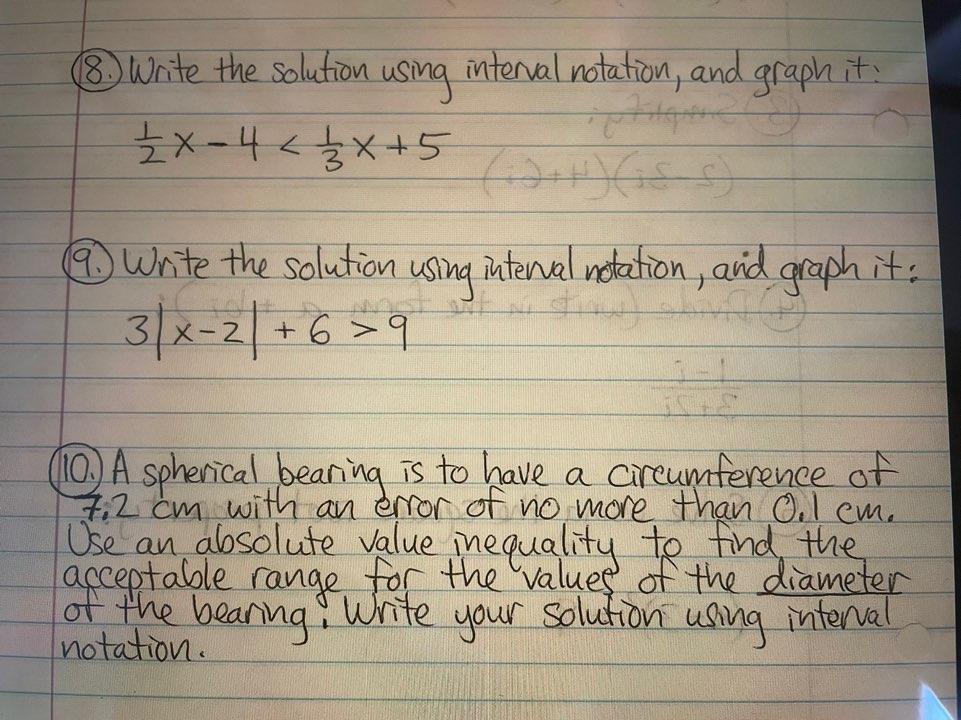 8. Write the solution using interval notation, and graph it:
1/2 x - 4 < 1/3 x + 5
9. Write the solution using interval notation, and graph it:
3|x-2| + 6 > 9
10. A spherical bearing is to have a circumference of
7.2 cm with an error of no more than 0.1 cm.
Use an absolute value inequality to find the
acceptable range for the values of the diameter
of the bearing. Write your solution using interval
notation.